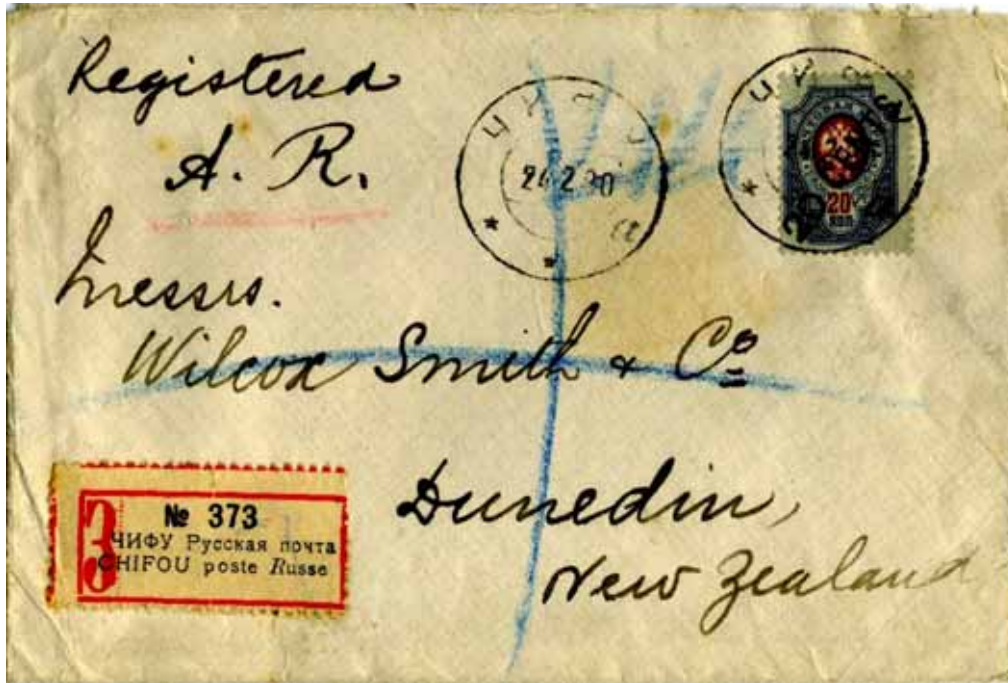 Registered
A. R.
ЧИФУ
24 2 20
a
ЧИФУ
20
КОП
Messrs.
Wilcox Smith & Co
Dunedin,
New Zealand
З
№ 373
ЧИФУ Русская почта
CHIFOU poste Russe